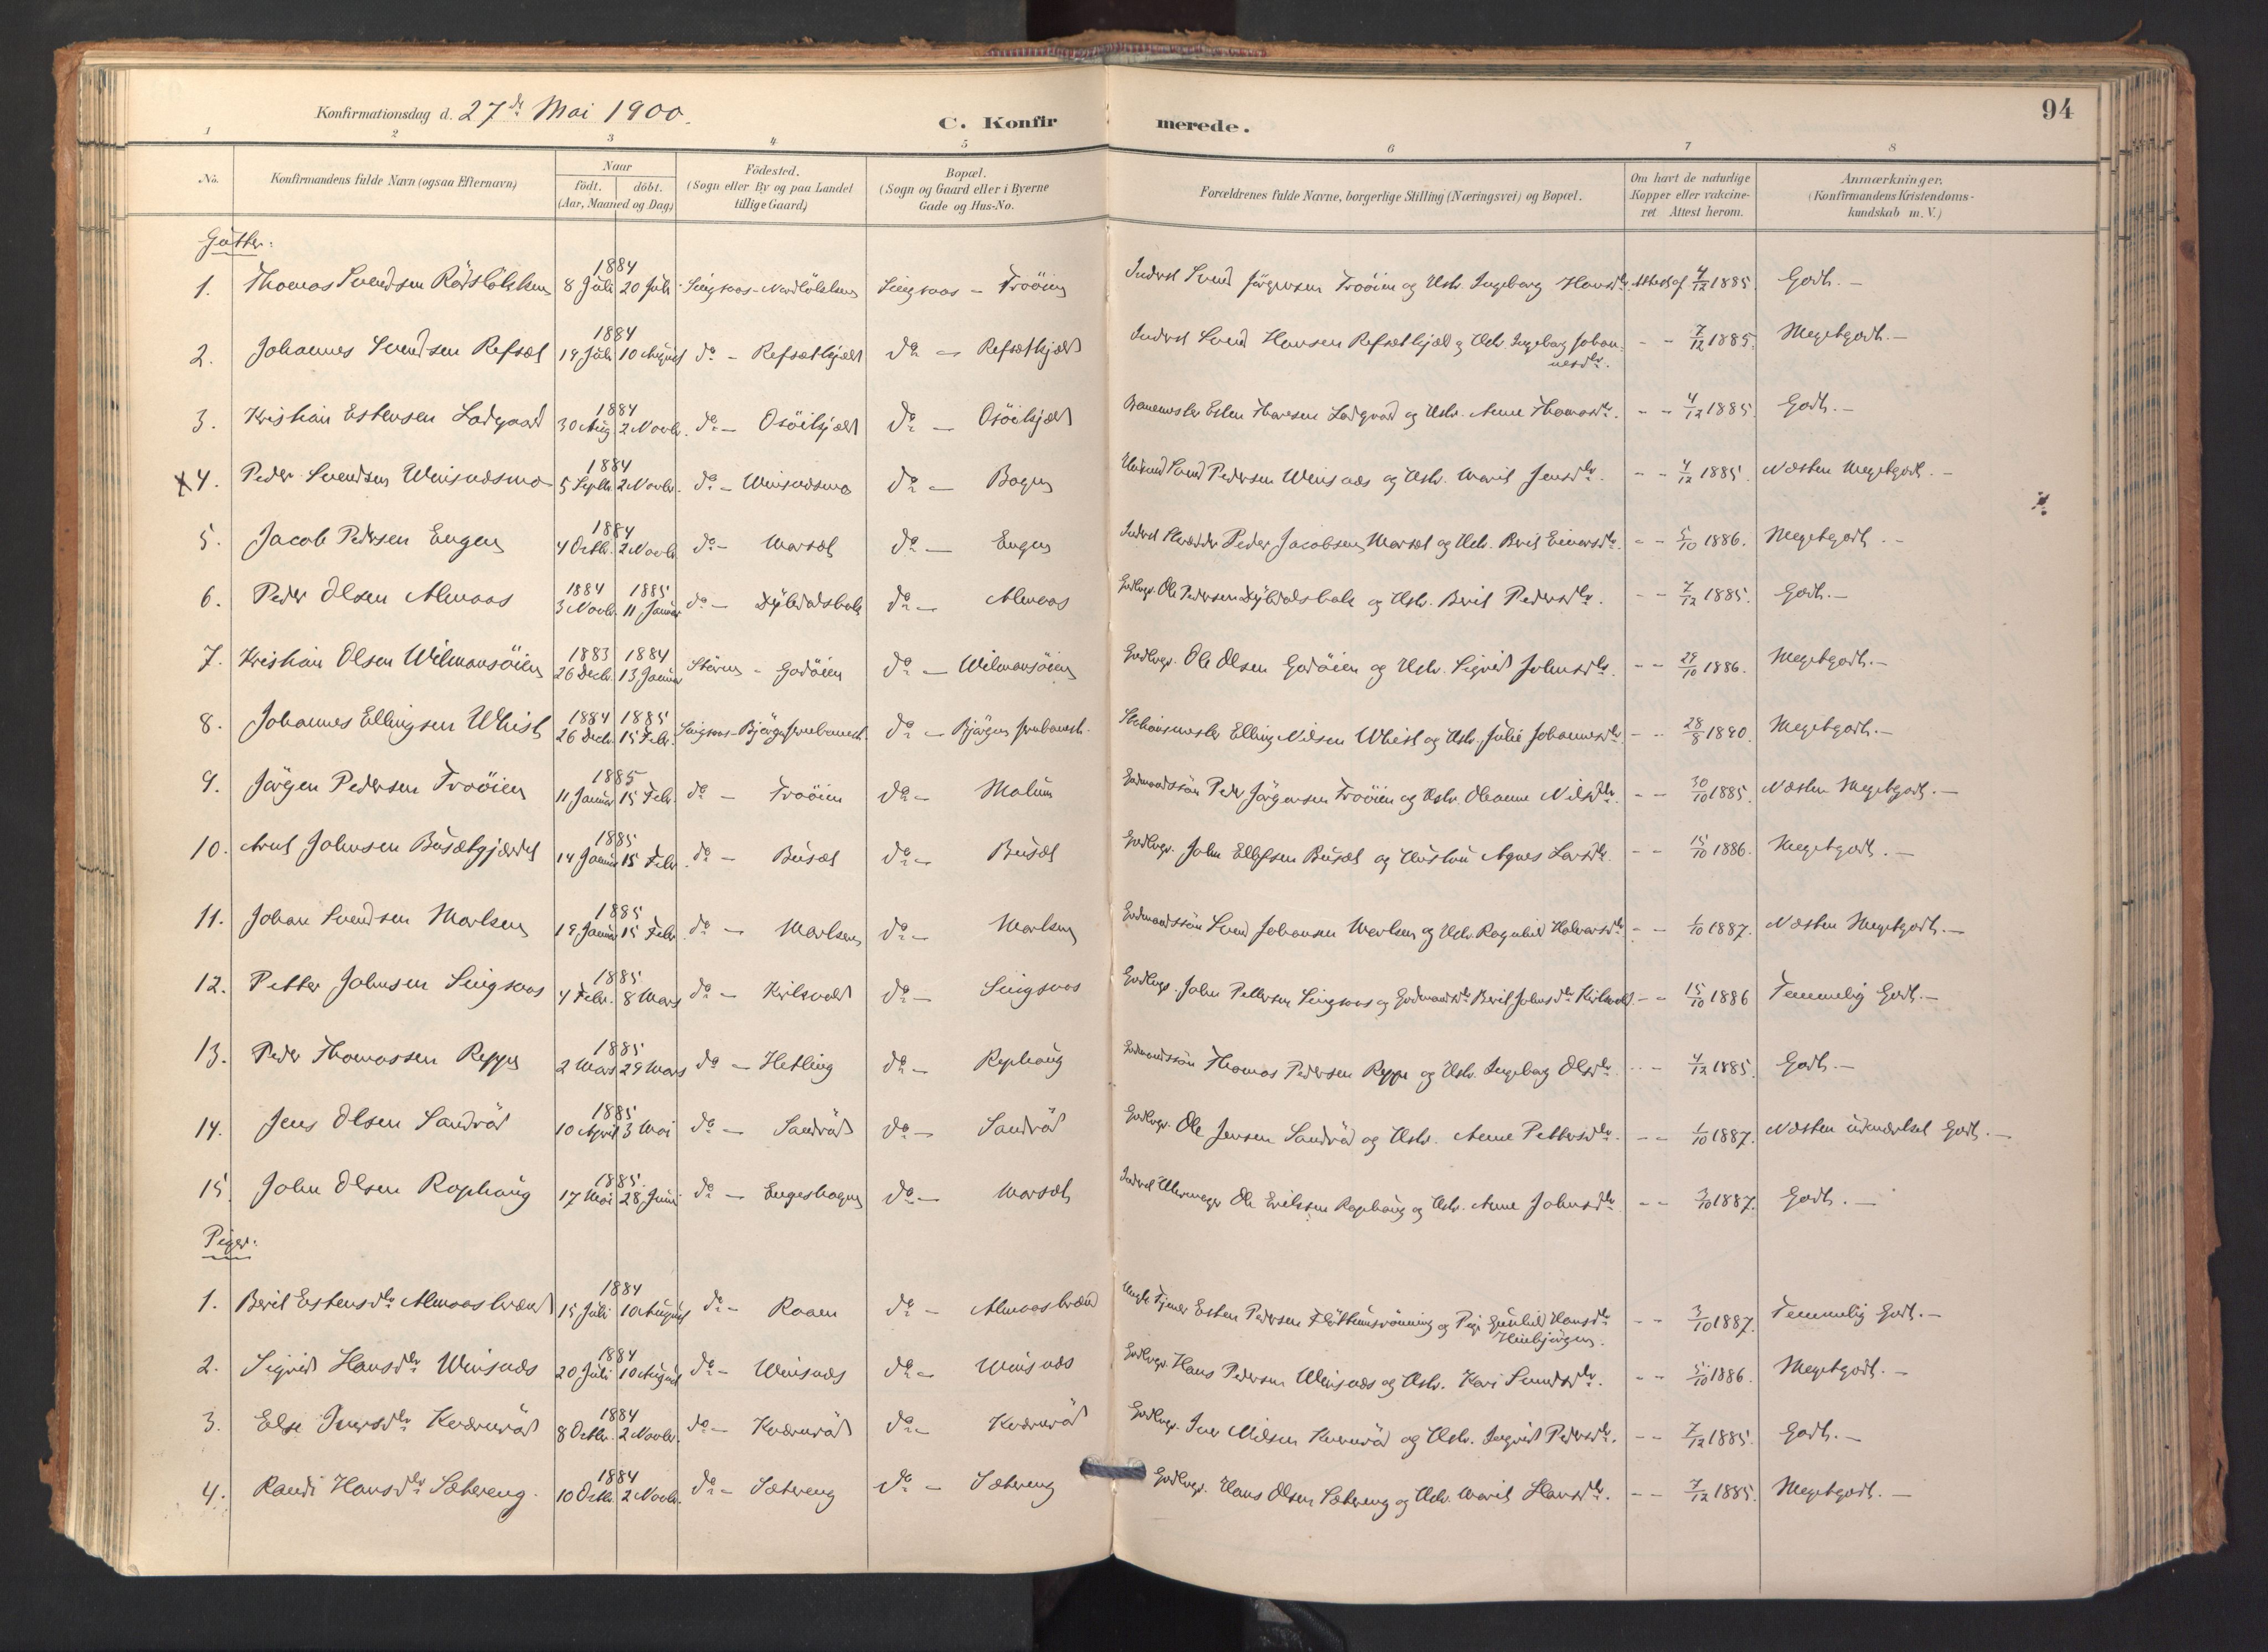 Konfirmationsdag d. 27de Mai 1900.
C. Konfirmerede.
94
1 2 3 4 5 6 7 8
No. Konfirmandens fulde Navn (ogsaa Efternavn) Naar födt. döbt. (Aar, Maaned og Dag) Födested. (Sogn eller By og paa Landet tillige Gaard) Bopæl. (Sogn og Gaard eller i Byerne Gade og Hus-No. Forældrenes fulde Navne, borgerlige Stilling (Næringsvei) og Bopæl. Om havt de naturlige Kopper eller vakcineret Attest herom. Anmærkninger. (Konfirmandens Kristendomskundskab m. V.)
Gutter:
1. Thomas Svendsen 1884 8 Juli 20 Juli Singsaas - Singsaas - Troöien Inderst Svend Jörgensen Troöien og Hstr. Ingeborg Hansdtr. Attest af 4/12 1885. Godt. -
2. Johannes Svendsen Refset 1884 19 Juli 10 August do - Refsethjæld do - Refsethjæld Inderst Svend Hansen Refsethjæld og Hstr. Ingeborg Johannesdtr. - - 7/12 1885. Megetgodt. -
3. Kristian Estensen Ladgaard 1884 30 Aug 2 Novbr. do - Osöikjæld do - Osöikjæld Banemester Esten Ladgaard og Hstr. Anne Thomasdr. - - 4/12 1885. Godt. -
x 4. Peder Svendsen Winsnæsmo 1884 5 Septbr. 2 Novbr. do - Winsnæsmo do - Bogen Svend Pedersen Winsnæs og Hstr. Marit Jensdtr. - - 4/12 1885. Næsten Megetgodt. -
5. Jacob Pedersen Engen 1884 4 Octbr. 2 Novbr. do - Marsæt do - Engen Inderst Skrædder Peder Jacobsen Marsæt og Hstr. Berit Einersdtr. - - 5/10 1886. Megetgodt. -
6. Peder Olsen Almaas 1884 3 Novbr. 1885 11 Januar do - do - Almaas Gaardbrgr. Ole Pedersen og Hstr. Berit Pedersdtr. - - 7/12 1885. Godt. -
7. Kristian Olsen Wilmansöien 1883 26 Decbr. 1884 13 Januar Stören - Godöien do - Wilmansöien Gaardbrgr. Ole Olsen Godöien og Hstr. Sigrid Johnsdtr. - - 29/10 1886. Megetgodt. -
8. Johannes Ellingsen Whist 1884 26 Decbr. 1885 15 Febr. Singsaas - Bjørgen Jernbanest. do - Bjørgen Jernbanest. Stationsmester Elling Nilsen Whist og Hstr. Julie Johannesdtr. - - 28/8 1890. Megetgodt. -
9. Jörgen Pedersen Troöien 1885 11 Januar 15 Febr. do - Troöien do - Malum Gaardmandssön Peder Jörgensen Troöien og Hstr. Oleanne Nilsdtr. - - 30/10 1885. Næsten Megetgodt. -
10. Arnt Johnsen Busætgjærdet 1885 14 Januar 15 Febr. do - Busæt do - Busæt Gaardbrgr. John Ellefsen Busæt og Hustru Agnes Larsdtr. - - 15/10 1886. Megetgodt. -
11. Johan Svendsen Marksen 1885 19 Januar 15 Febr. do - Marksen do - Marksen Gaardmandssön Svend Johansen Marksen og Hstr. Ragnhild Halvorsdtr - - 1/10 1887. Næsten Megetgodt. -
12. Petter Johnsen Singsaas 1885 4 Febr. 8 Mars do - Kirkvold do - Singsaas Gaardbrgr. John Pettersen Singsaas og Gaardmandsdtr. Berit Johnsdtr. Kirkvold - - 15/10 1886 Temmelig Godt. -
13. Peder Thomassen Reppe 1885 2 Mars 29 Mars do - Hetling do - Rephaug Gaardmandssön Thomas Pedersen Reppe og Hstr. Ingeborg Olsdtr. - - 4/12 1885. Godt. -
14. Jens Olsen Sandröd 1885 10 April 3 Mai do - Sandröd do - Sandröd Gaardbrgr. Ole Jensen Sandröd og Hstr. Anne Pettersdtr. - - 1/10 1887. Næsten udmærket Godt. -
15. John Olsen Rophaug 1885. 17 Mai 28 Juni do - Engeshagen do - Marsæt Inderst Ole Eriksen Rophaug og Hstr. Anne Johnsdtr. - - 3/10 1887. Godt. -
Piger:
1. Berit Estensdtr. Almaasbræend 1884 15 Juli 10 August do - Roaen do - Almaasbrænd Esten Pedersen og Pige Gunhild Hansdtr. - - 3/10 1887. Temmelig Godt. -
2. Sigrid Hansdtr. Winsnæs 1884 20 Juli 10 August do - Winsnæs do - Winsnæs Gaardbrgr. Hans Pedersen Winsnæs og Hstr. Kari Svendsdtr. - - 5/10 1886. Megetgodt. -
3. Else Iversdtr. Kværnröd 1884 8 Octbr. 2 Novbr. do - Kværnröd do - Kværnröd Gaardbrgr. Iver Nilsen Kværnröd og Hstr. Ingrid Pedersdtr. - - 7/12 1885. Godt. -
4. Randi Hansdtr. Sætereng. 1884 10 Octbr. 2 Novbr. do - Sætereng do - Sætereng Gaardbrgr. Hans Olsen Sætereng og Hstr. Marit Hansdtr. - - 7/12 1885. Megetgodt. -